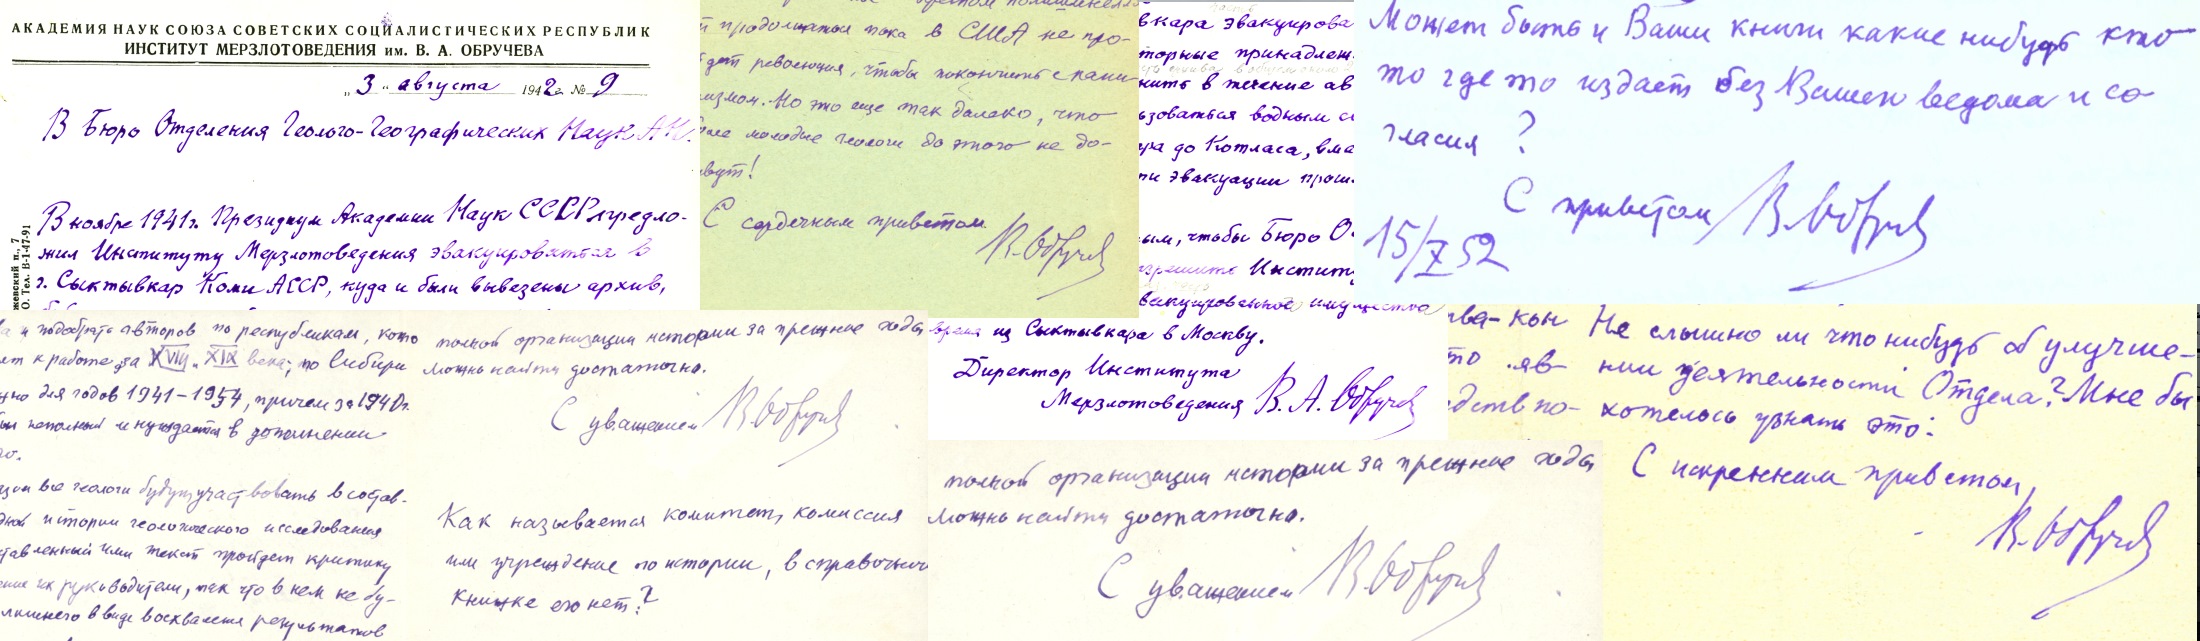 АКАДЕМИЯ НАУК СОЮЗА СОВЕТСКИХ СОЦИАЛИСТИЧЕСКИХ РЕСПУБЛИК
ИНСТИТУТ МЕРЗЛОТОВЕДЕНИЯ им. В. А. ОБРУЧЕВА
„3" августа 1942 г. № 9
В Бюро Отделения Геолого-Географических Наук АН
В ноябре 1941 г. Президиум Академии Наук СССР предло-
жил Институту Мерзлотоведения эвакуироваться в
г. Сыктывкар Коми АССР, куда и были вывезены архив,
О. Тел. В-1-47-91
продолжаться пока в США не про-
дет революция, чтобы покончить с капи-
измом. Но это еще так далеко, что
молодые геологи до этого не до-
вут!
С сердечным приветом
В. Обручев
вкара эвакуирова
торные принадлеж
нить в течение ав
ьзоваться водным
ра до Котласа, вме
ти эвакуации прош
ым, чтобы Бюро О
азрешите Институ
вакуированное имущество
время из Сыктывкара в Москву.
Директор Института
Мерзлотоведения В. А. Обручев
Может быть и Ваши книги какие нибудь кто
то где то издает без Вашей ведома и со-
гласия?
С приветом В. Обручев
15/X 52
и подобрать авторов по республикам, кото
ят к работе за XVIII и XIX века; по Сибири
для годов 1941–1954, причем за 1940 г.
неполный и нуждается в дополнении
го.
все геологи будут участвовать в состав-
истории геологического исследования
тавленный ими текст пройдет критику
их руководители, так что в нем не бу-
лишнего в виде восхваления результатов
полной организации истории за прежние года
можно найти достаточно.
С уважением В. Обручев
Как называется комитет, комиссия
или учреждение по истории, в справочной
книжке его нет?
полной организации истории за прежние года
можно найти достаточно.
С уважением В. Обручев
ва-кон
то яв-
едств по-
Не слышно ли что нибудь об улучше-
нии деятельности Отдела? Мне бы
хотелось узнать это.
С искренним приветом,
В. Обручев